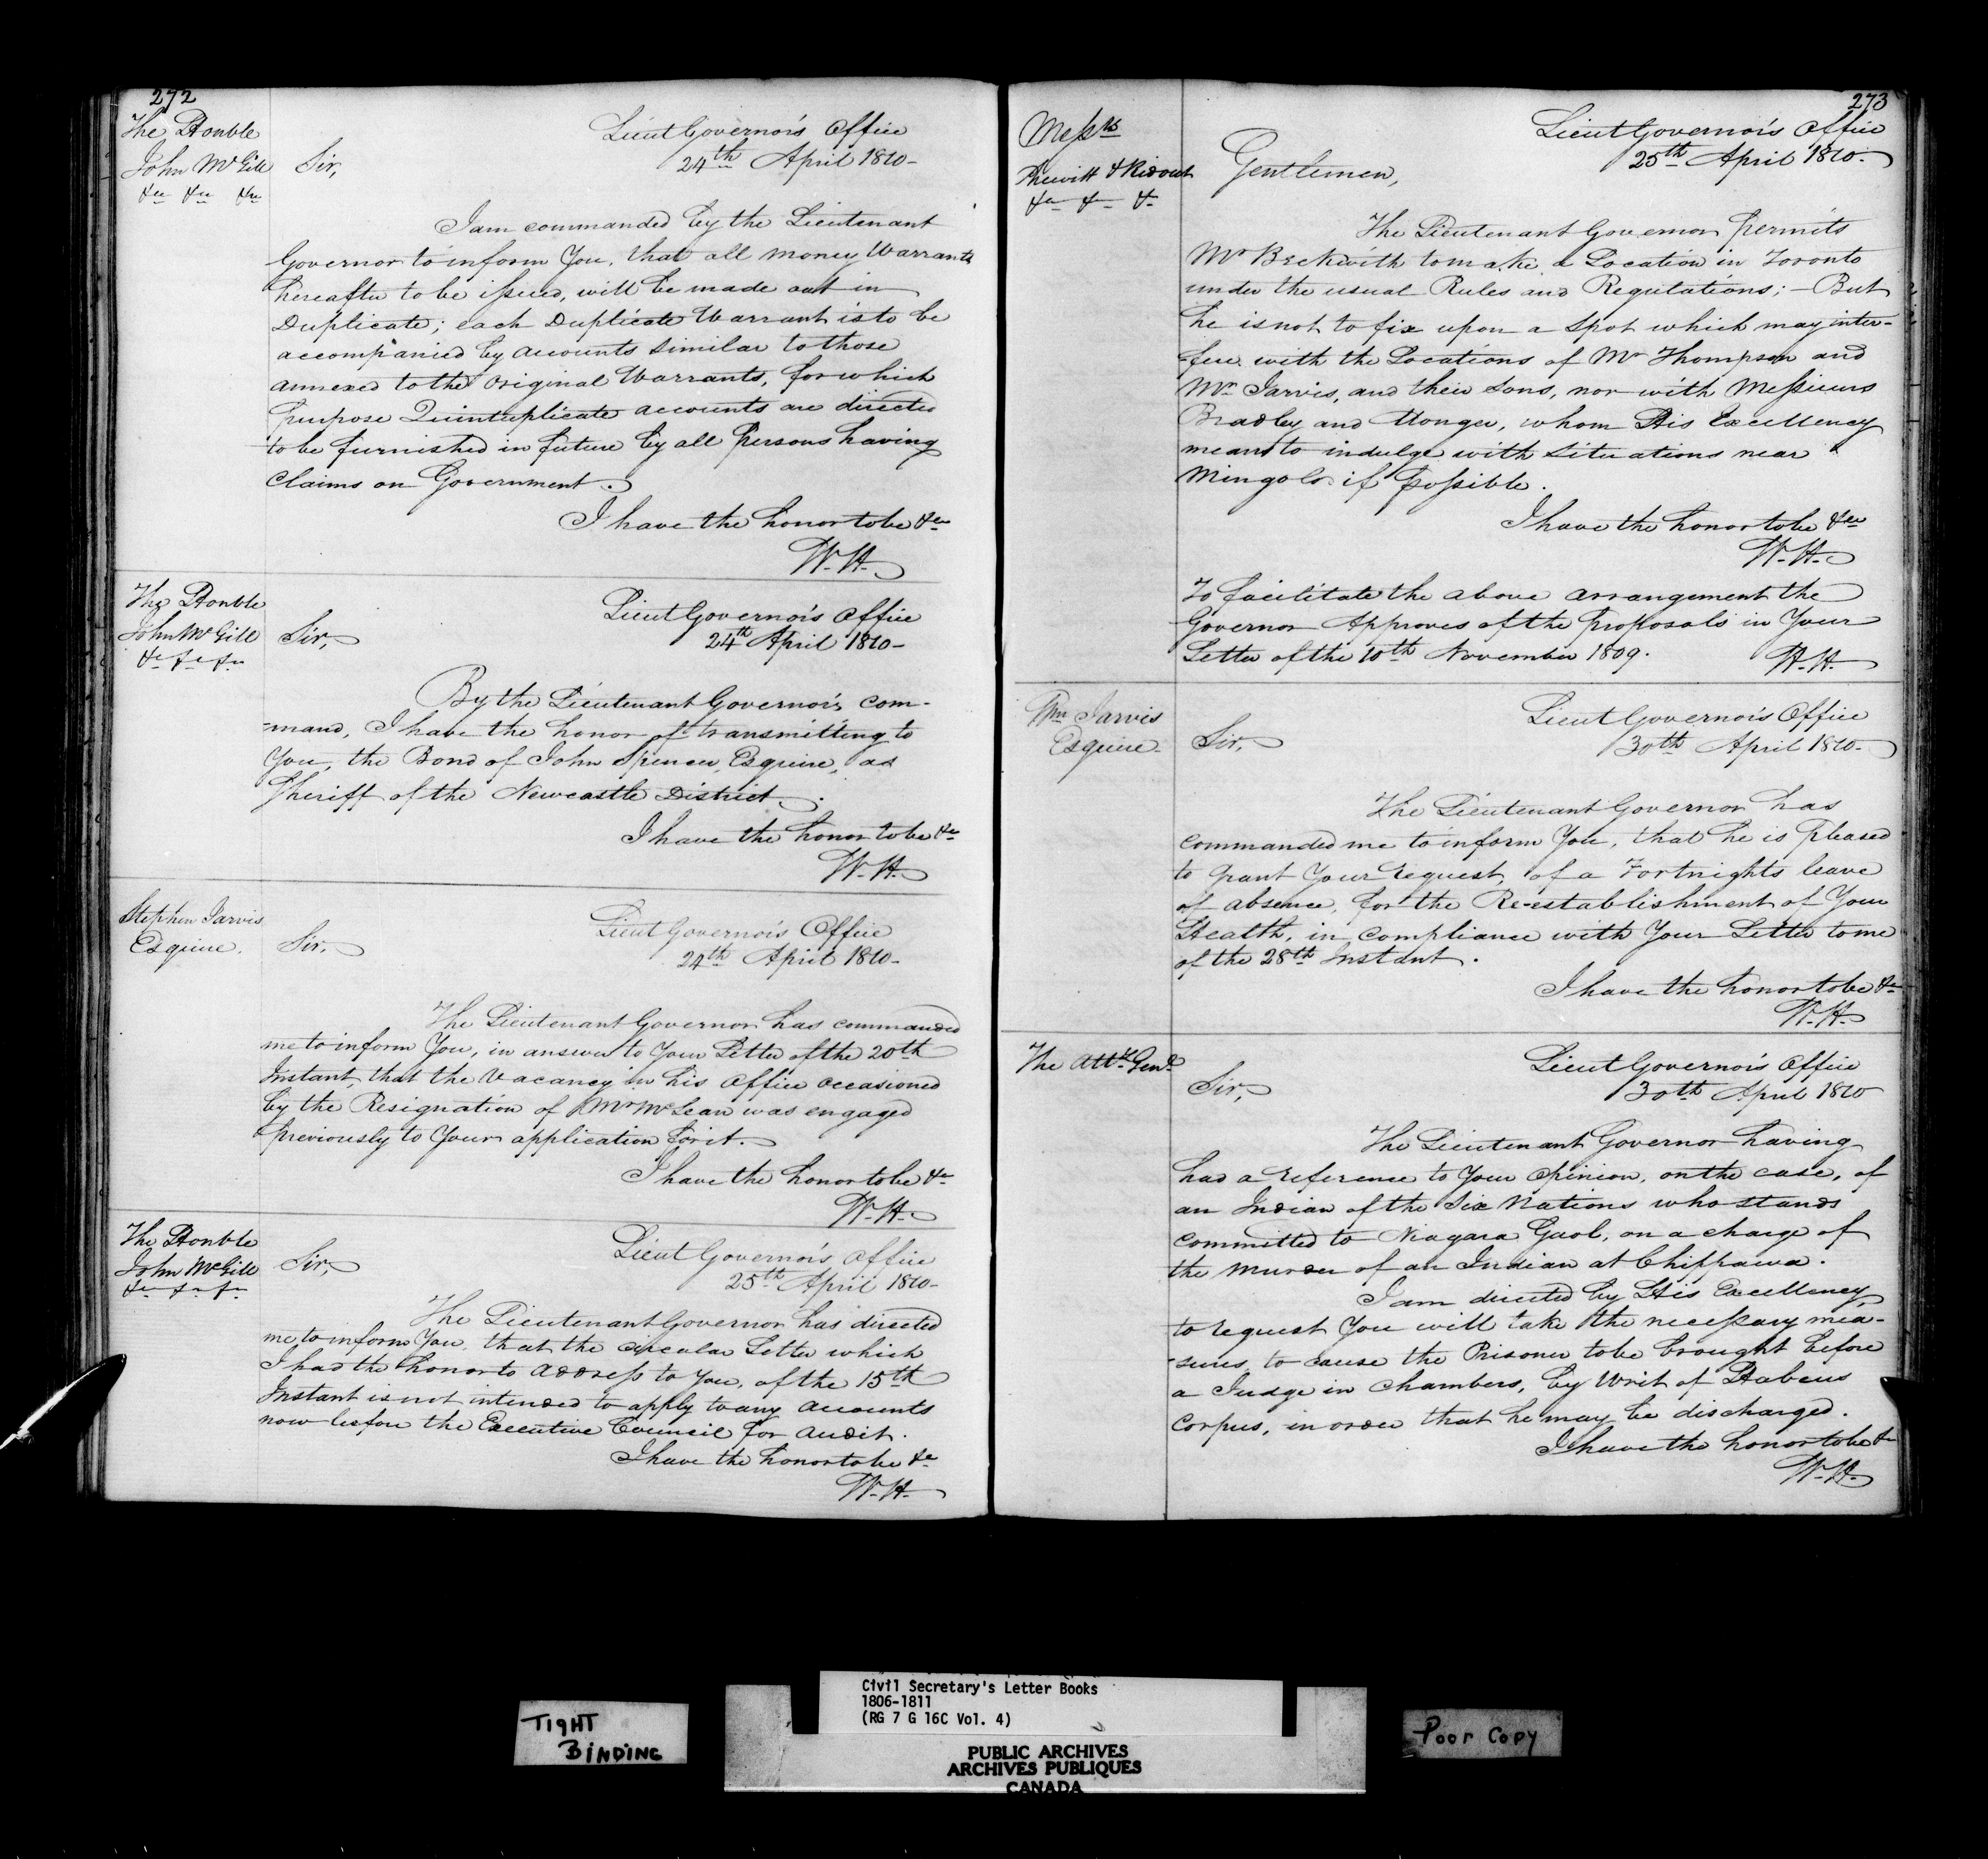 272
The Honble
John McGill
&c &c &c
Lieut Governor's Office
24th April 1810-
Sir,
I am commanded by the Lieutenant
Governor to inform You, that all money Warrants
hereafter to be issued, will be made out in
Duplicate; each Duplicate Warrant is to be
accompanied by accounts similar to those
annexed to the original Warrants, for which
purpose Quintuplicate accounts are directed
to be furnished in future by all Persons having
Claims on Government.
I have the honor to be &c
W. H.
The Honble
John McGill
&c &c &c
Lieut Governor's Office
24th April 1810-
Sir,
By the Lieutenant Governor's com-
-mand, I have the honor of transmitting to
You, the Bond of John Spencer, Esquire, as
Sheriff of the Newcastle District.
I have the honor to be &c
W. H.
Stephen Jarvis
Esquire.
Lieut Governor's Office
24th April 1810-
Sir,
The Lieutenant Governor has commanded
me to inform You, in answer to Your Letter of the 20th
Instant, that the Vacancy in his Office occasioned
by the Resignation of Mr McLean was engaged
previously to Your application for it.
I have the honor to be &c
W. H.
The Honble
John McGill
&c &c &c
Lieut Governor's Office
25th April 1810-
Sir,
The Lieutenant Governor has directed
me to inform You, that the circular Letter which
I had the honor to address to You, of the 15th
Instant is not intended to apply to any accounts
now before the Executive Council for Audit.
I have the honor to be &c
W. H.
273
Messrs
& Ridout
&c &c &c
Lieut Governor's Office
25th April 1810.
Gentlemen,
The Lieutenant Governor permits
Mr Beckwith to make a Location in Toronto
under the usual Rules and Regulations; - But
he is not to fix upon a spot which may inter-
-fere with the Locations of Mr Thompson and
Mr Jarvis, and their Sons, nor with Messieurs
Bradley and Monger, whom His Excellency
means to indulge with situations near
Mingo's if possible.
I have the honor to be &c
W. H.
To facilitate the above arrangement the
Governor Approves of the Proposals in Your
Letter of the 10th November 1809.
W. H.
Wm Jarvis
Esquire
Lieut Governor's Office
30th April 1810-
Sir,
The Lieutenant Governor has
commanded me to inform You, that he is Pleased
to grant Your request, of a Fortnights leave
of absence, for the Re-establishment of Your
Health, in compliance with Your Letter to me
of the 28th Instant.
I have the honor to be &c
W. H.
The Atty Genl
Lieut Governor's Office
30th April 1810
Sir,
The Lieutenant Governor having
had a reference to Your Opinion, on the case, of
an Indian of the Six Nations who stands
committed to Niagara Gaol, on a charge of
the Murder of an Indian at Chippawa.
I am directed by His Excellency
to request You will take the necessary mea-
-sures, to cause the Prisoner to be brought before
a Judge in Chambers, by Writ of Habeus
Corpus, in order that he may be discharged.
I have the honor to be &c
W. H.
TIGHT
BINDING
Civil Secretary's Letter Books
1806-1811
(RG 7 G 16C Vol. 4)
PUBLIC ARCHIVES
ARCHIVES PUBLIQUES
CANADA
Poor Copy